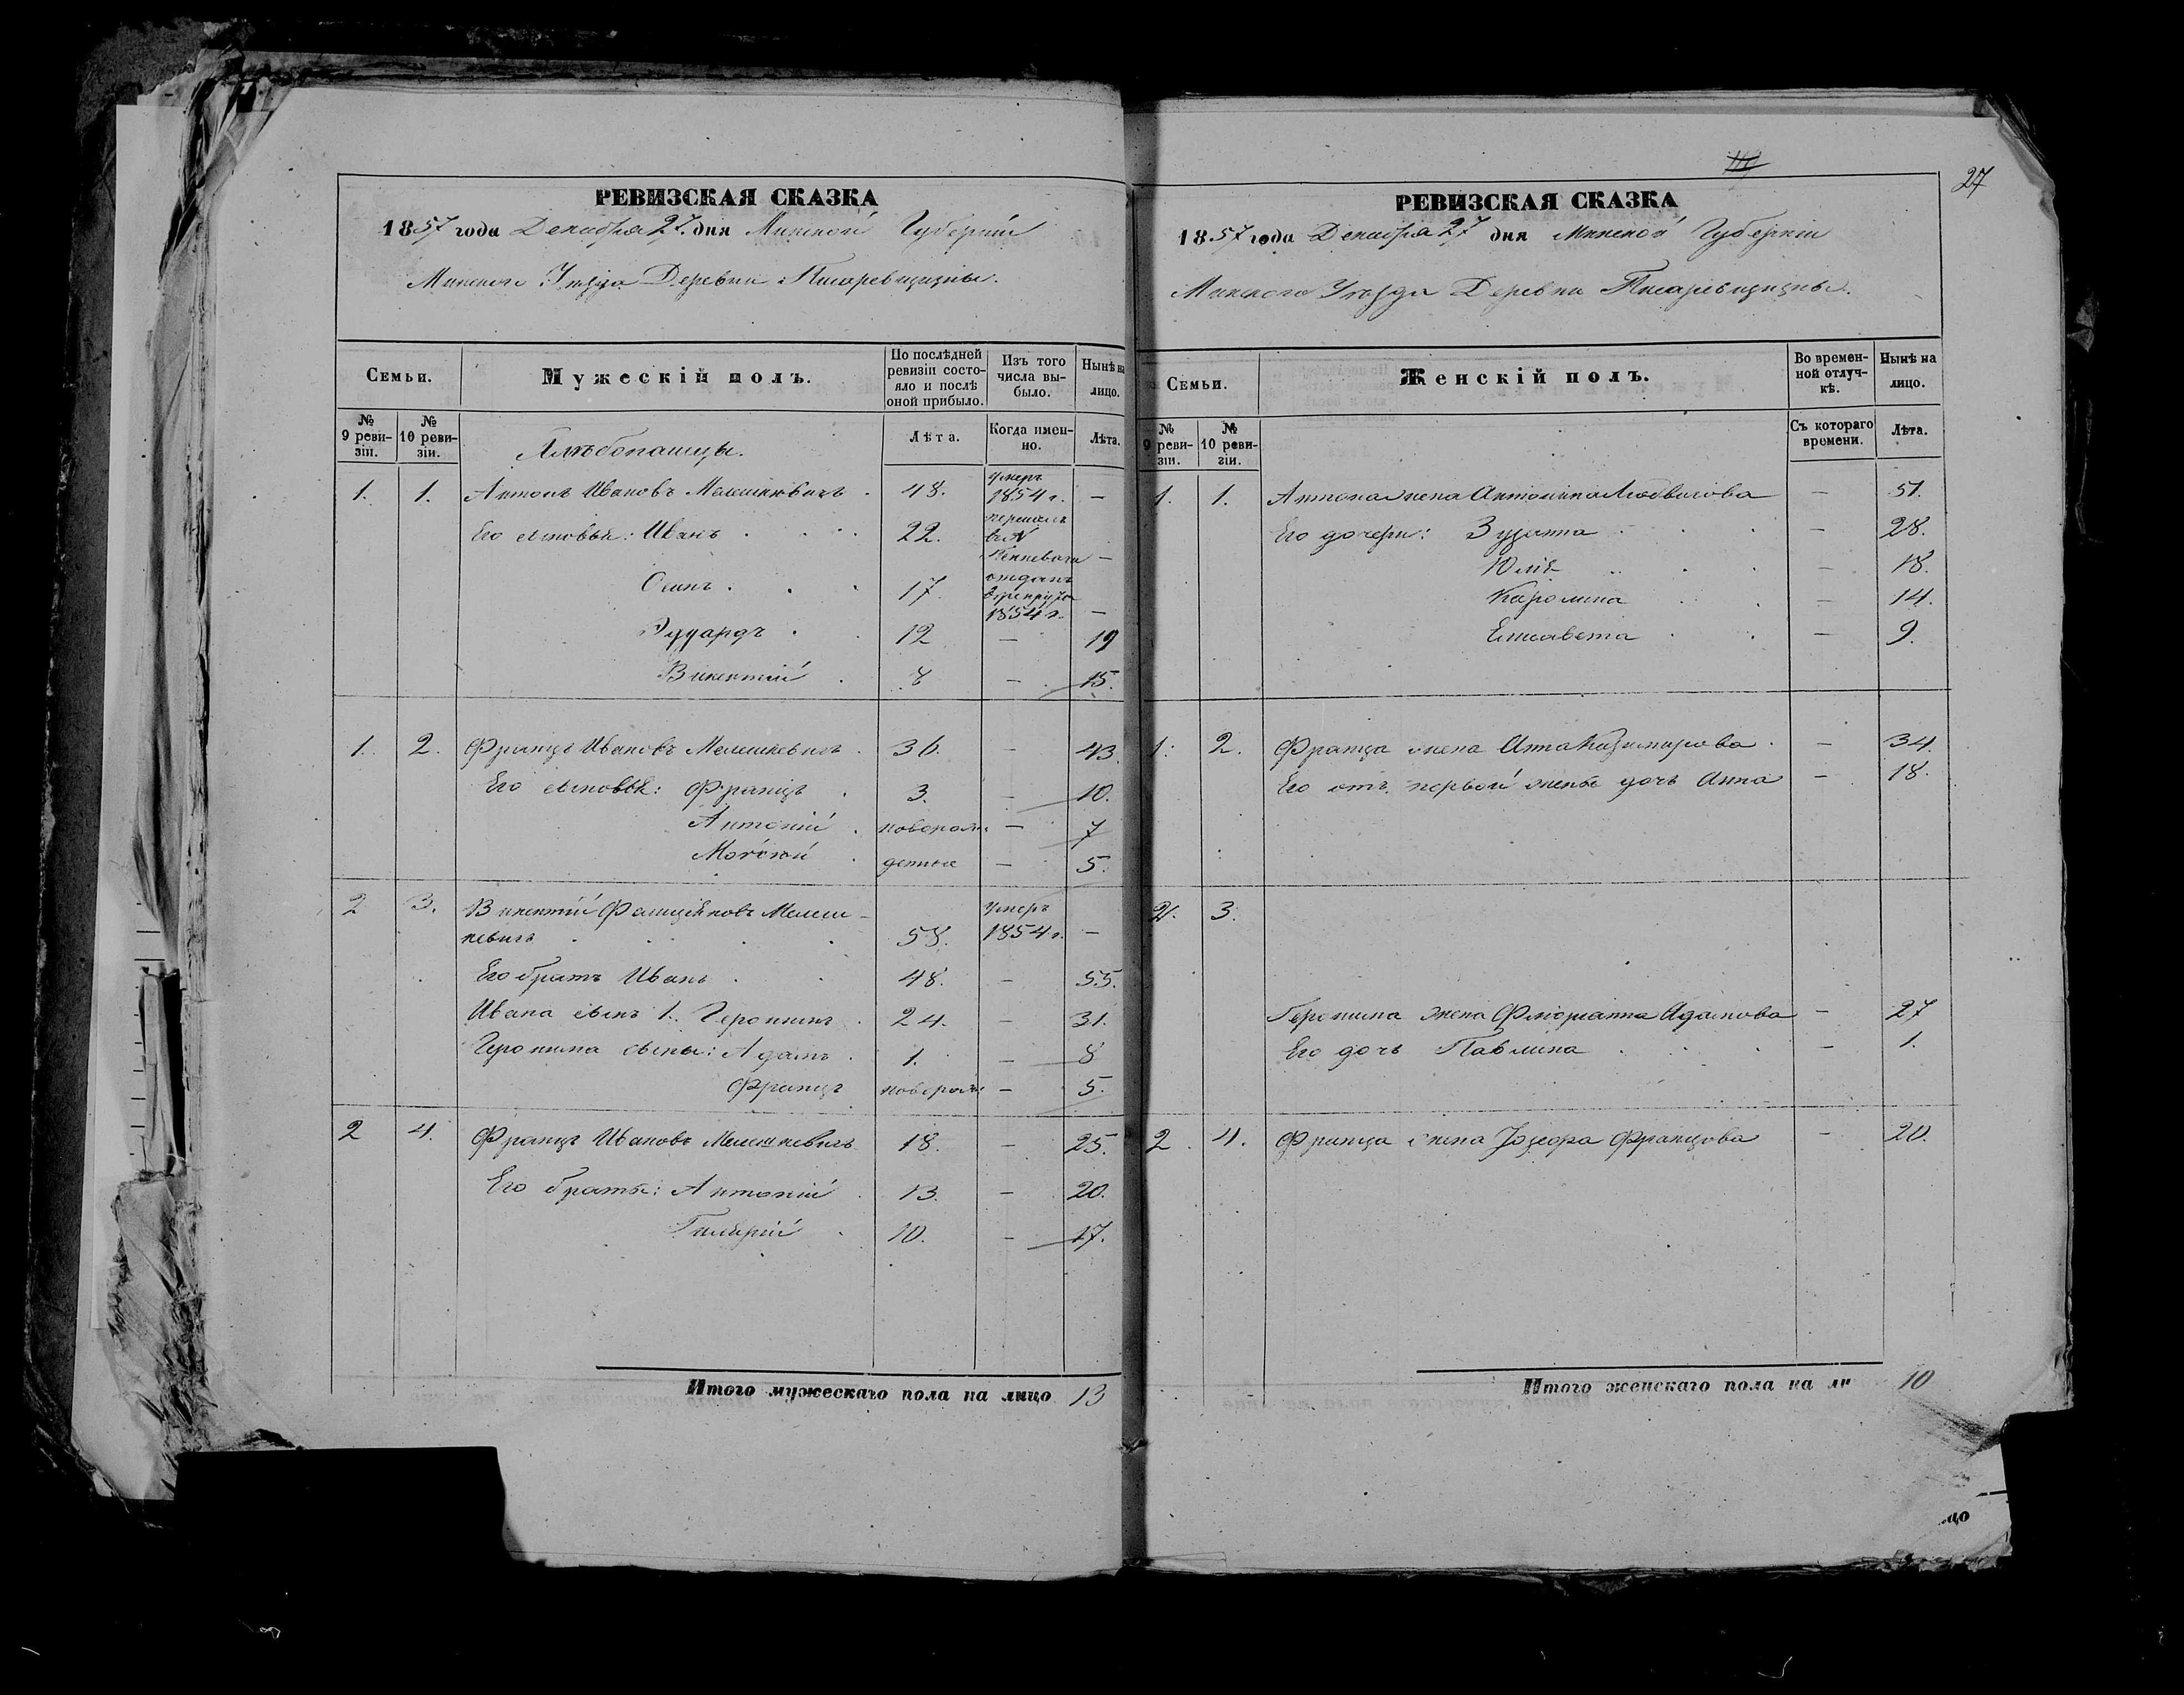 27
РЕВИЗСКАЯ СКАЗКА
1857 года Декабря 27. дня Минской Губерніи
Минскаго Уѣзда Деревни Писаревщизны.
Семьи.
Мужескій полъ.
По послѣдней ревизіи состояло и послѣ оной прибыло.
Изъ того числа выбыло.
Нынѣ на лицо.
№ 9 ревизіи.
№ 10 ревизіи.
Хлѣбопашцы.
Лѣта.
Когда именно.
Лѣта.
1. 1. Антонъ Ивановъ Мелешкевичъ . 48. умеръ 1854 г. —
Его сыновья: Иванъ . . . 22. —
Осипъ . . . 17. отданъ 1854 г. —
Эдуардъ . . 12 — 19
Викентій . 8 — 15.
1. 2. Францъ Ивановъ Мелешкевичъ . 36. — 43.
Его сыновья: Францъ . 3. — 10.
Антоній . новорож — 7
. денные — 5.
2 3. Викентій Фелиціяновъ Мелеш-
кевичъ . . . . 58. умеръ 1854 г. —
Его братъ Иванъ . . 48. — 55.
Ивана сынъ 1. Геронимъ . 24. — 31.
Геронима сыны: Адамъ . 1. — 8
Францъ новорож: — 5.
2 4. Францъ Ивановъ Мелешкевичъ 18. — 25.
Его братья: Антоній . 13. — 20.
. 10. — 17.
Итого мужескаго пола на лицо 13
РЕВИЗСКАЯ СКАЗКА
1857 года Декабря 27 дня Минской Губерніи
Минскаго Уѣзда Деревни Писаревщизны.
Семьи.
Женскій полъ.
Во временной отлучкѣ.
Нынѣ на лицо.
№ 9 ревизіи.
№ 10 ревизіи.
Съ котораго времени.
Лѣта.
1. 1. Антона жена Антонина Людвигова — 51.
Его дочери: Зузанна . . . — 28.
Юлія . . — 18.
Каролина . . — 14.
Елисавета . . — 9.
1. 2. Франца жена Анна Казимирова . — 34.
Его отъ первой жены дочь Анна — 18.
2. 3.
Геронима жена Флоріанна Адамова — 27
Его дочь Павлина . . . — 1.
2 4. Франца жена Юзефа Францова — 20.
Итого женскаго пола на ли 10
цо